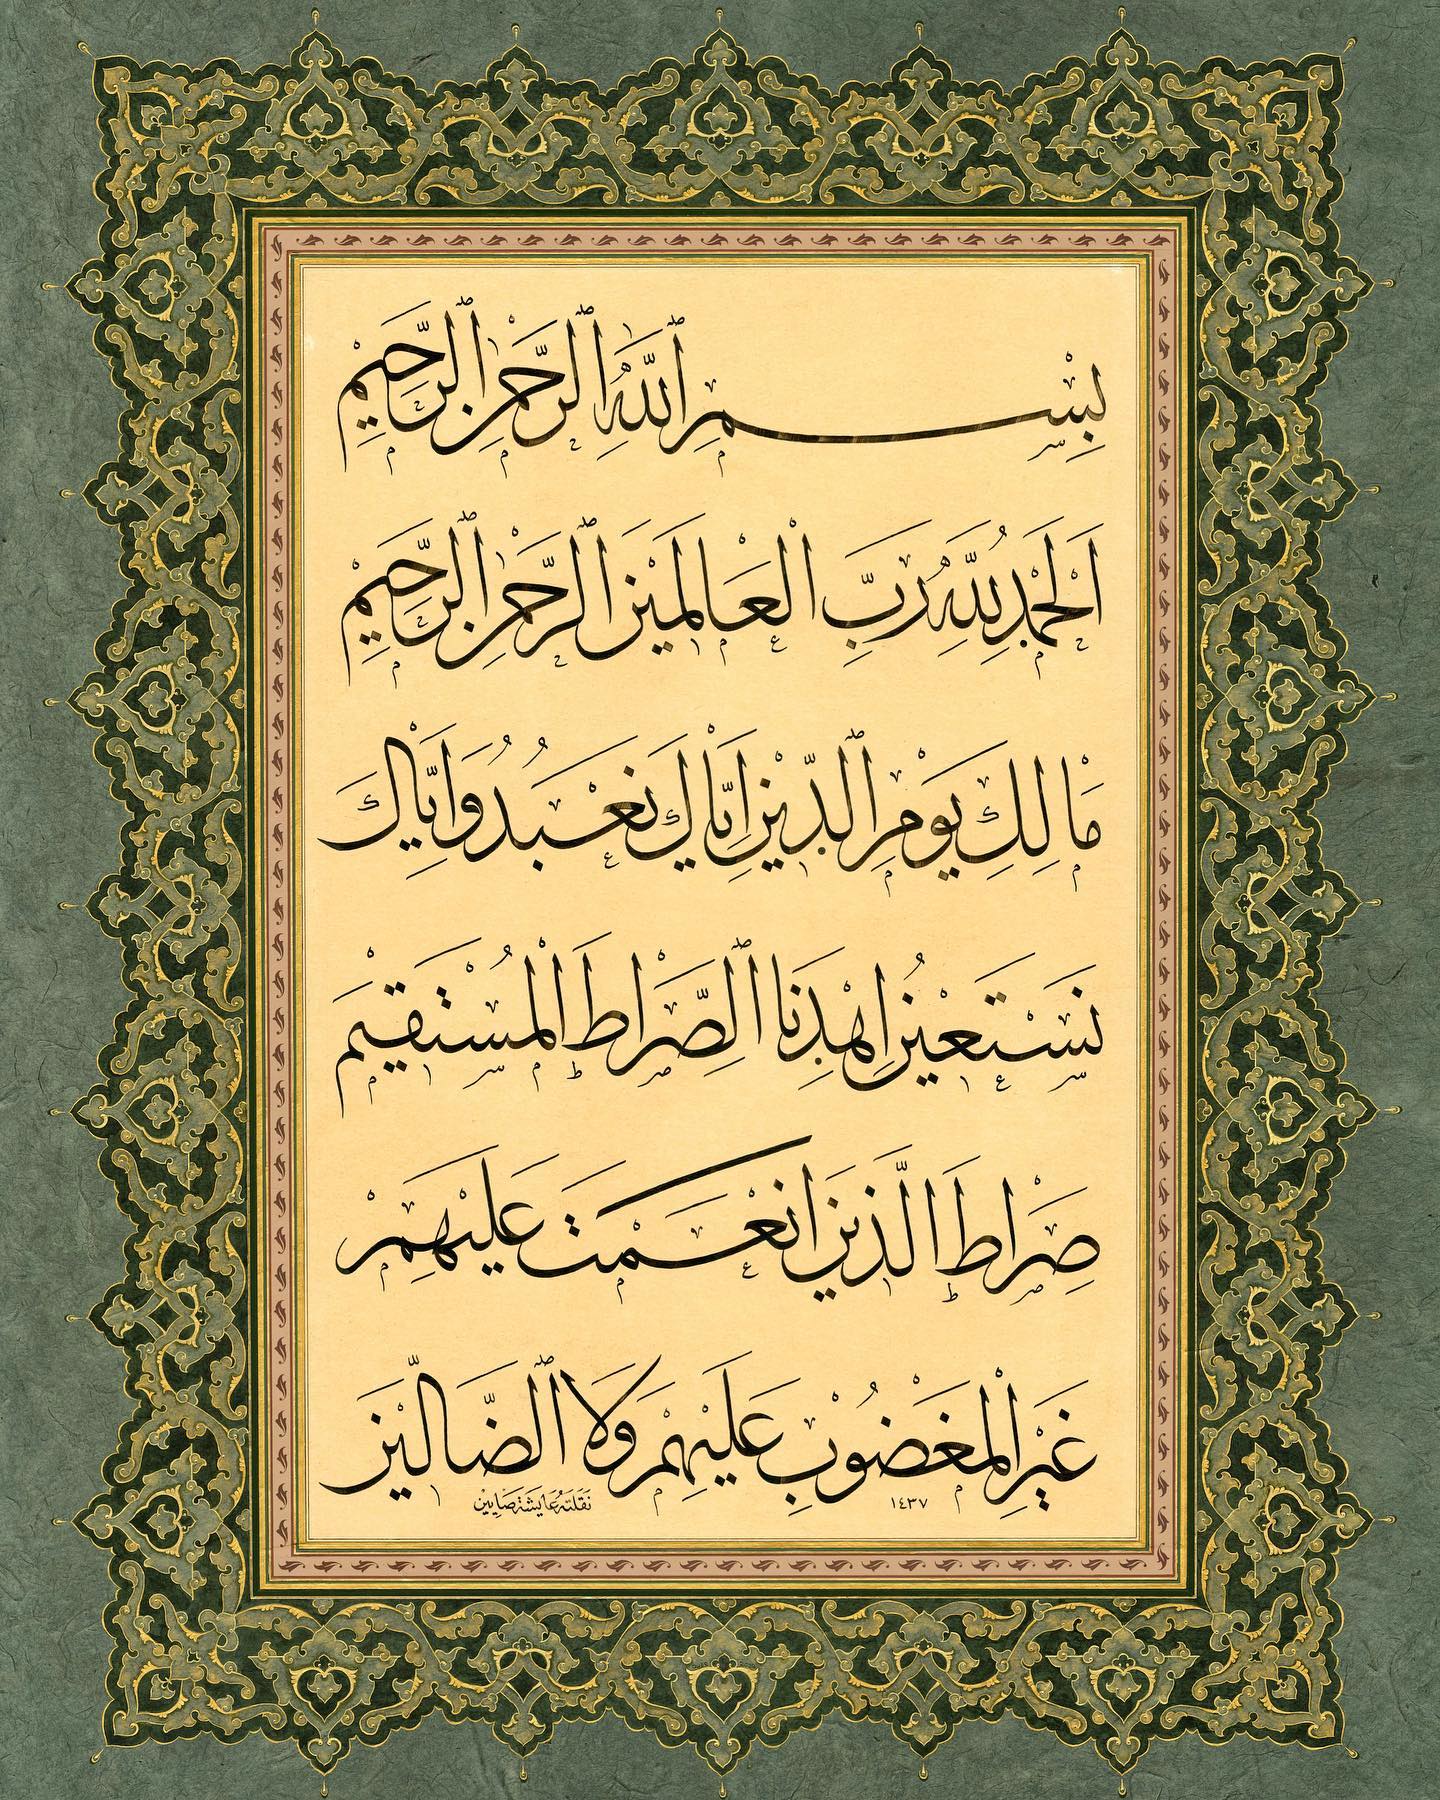 بِسْمِ ٱللّٰهِ ٱلرَّحْمٰنِ ٱلرَّحِيمِ
اَلْحَمْدُ لِلّٰهِ رَبِّ الْعَالَمِينَ ٱلرَّحْمٰنِ ٱلرَّحِيمِ
مَالِكِ يَوْمِ ٱلدِّينِ اِيَّاكَ نَعْبُدُ وَاِيَّاكَ
نَسْتَعِينُ اِهْدِنَا ٱلصِّرَاطَ الْمُسْتَقِيمَ
صِرَاطَ الَّذِينَ اَنْعَمْتَ عَلَيْهِمْ
غَيْرِ الْمَغْضُوبِ عَلَيْهِمْ وَلَا ٱلضَّالِّينَ
١٤٣٧ نَقَلَتْهُ عَايِشَة صَايِيْن